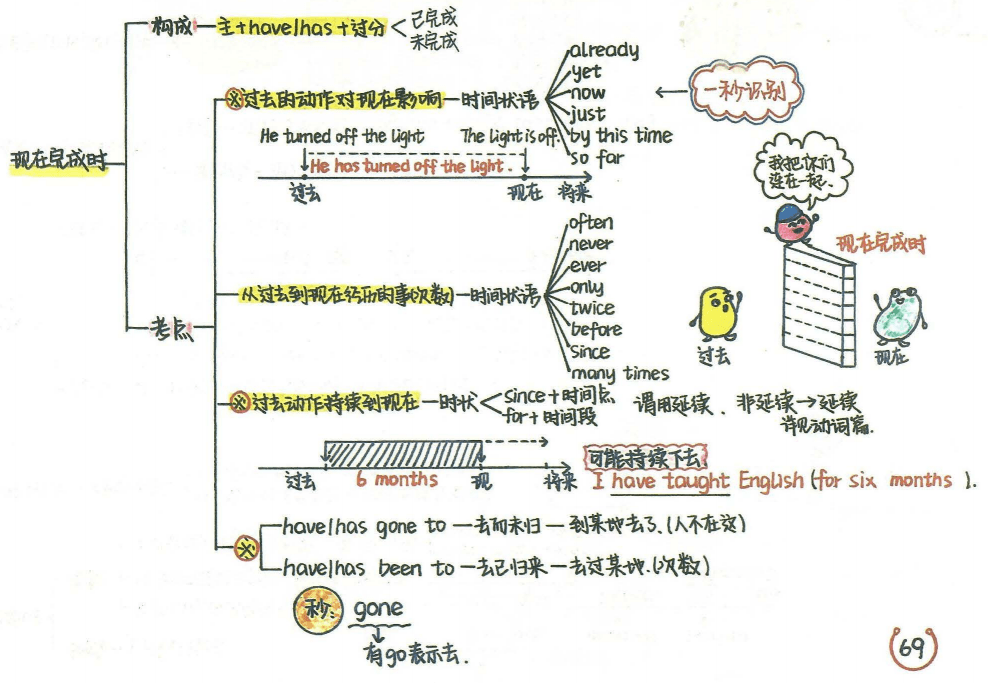 构成 — 主+have/has+过分
已完成
未完成
现在完成时
※过去的动作对现在影响 — 时间状语
already
yet
now
just
by this time
so far
一秒识别
He turned off the light
The light is off.
He has turned off the light.
过去
现在
将来
我把你们
连在一起.
现在完成时
过去
现在
考点
从过去到现在经历的事(次数) — 时间状语
often
never
ever
only
twice
before
since
many times
※过去动作持续到现在 — 时状
since+时间点
for+时间段
谓用延续、非延续→延续
详见动词篇.
过去
6 months
现
将来
可能持续下去
I have taught English (for six months ).
※
have/has gone to — 去而未归 — 到某地去了.(人不在这)
have/has been to — 去已归来 — 去过某地.(次数)
秒: gone
有go表示去.
69